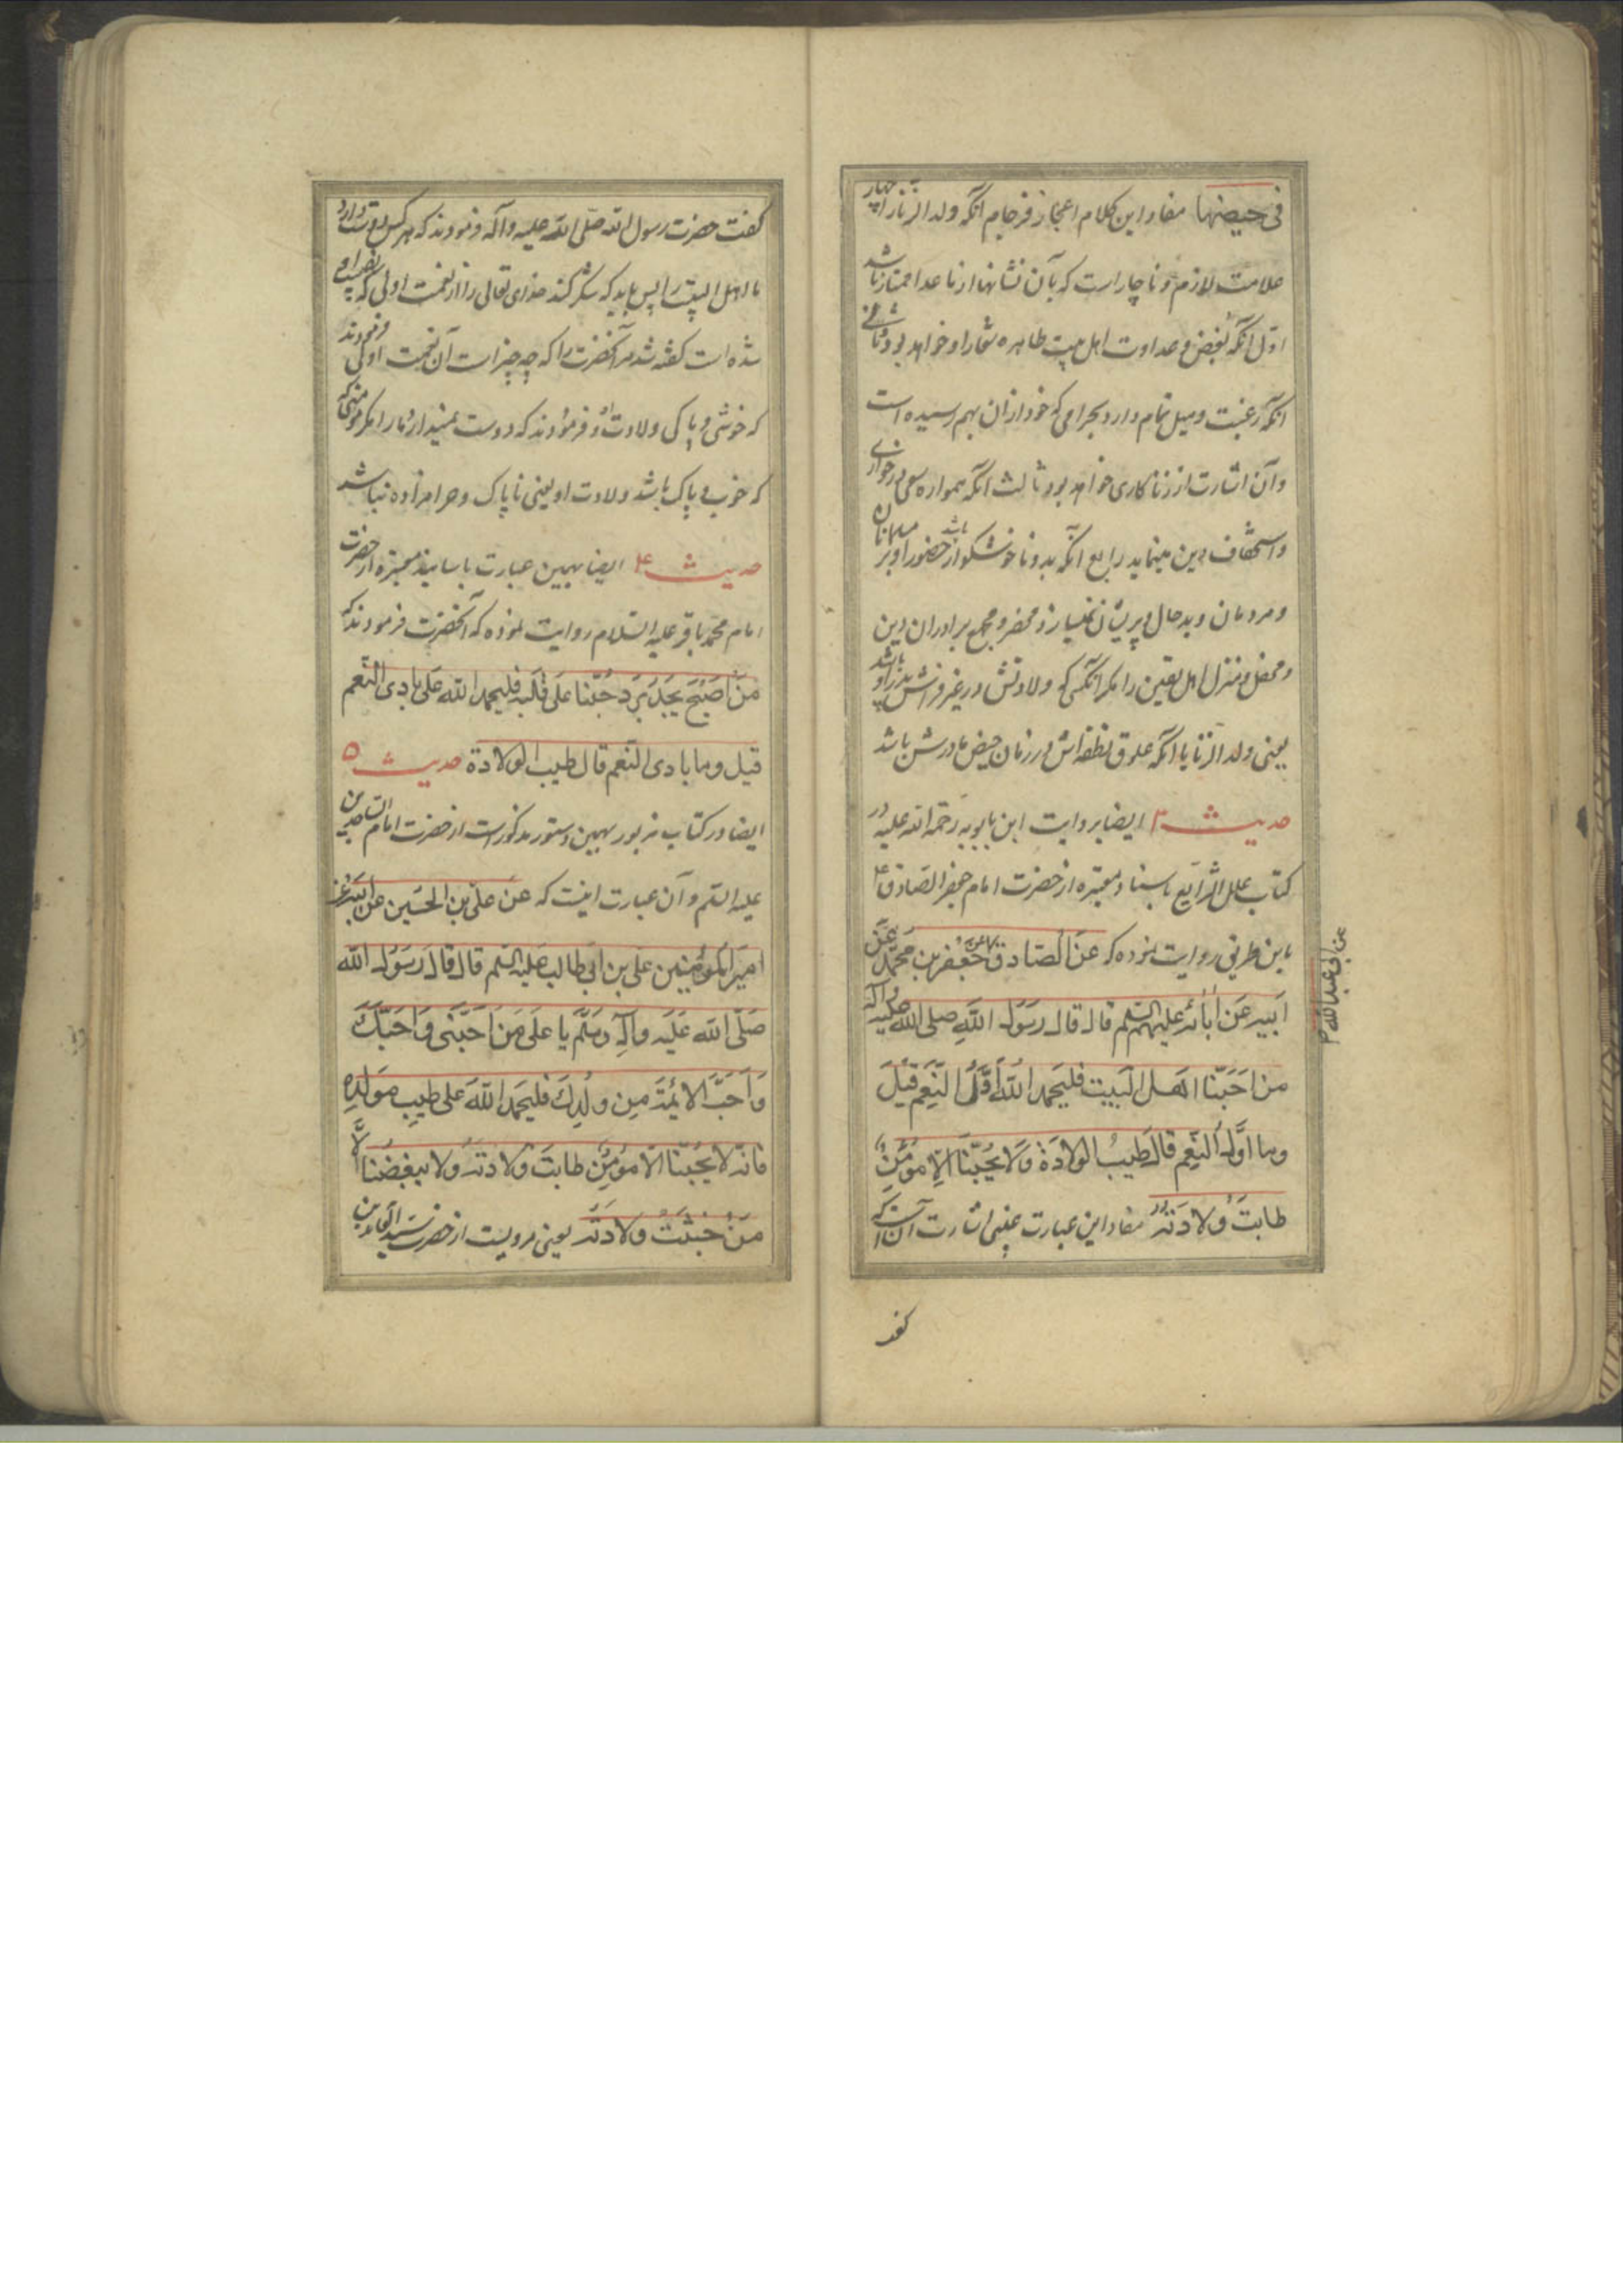 فی حیضها مفاد این کلام اعجاز فرجام آنکه ولد الزنا را چهار
علامت لازم و ناچار است که بآن نشانها از ما عدا ممتاز باشد
اول آنکه بغض و عداوت اهل بیت طاهره شعار او خواهد بود و ثانی
آنکه رغبت و میل تمام دارد بحرامی که خود از آن بهم رسیده است
و آن اشارت از زناکاری خواهد بود ثالث آنکه همواره سعی در خواری
و استخفاف دین مینماید رابع آنکه بد و ناخوشگوار باشد حضور او بر مسلمانان
و مردمان و بدحال و پریشان نمیسازد محضر و مجمع برادران دین
و محفل و منزل اهل یقین را مگر آنکسی که ولادتش در غیر فراش پدر او باشد
یعنی ولد الزنا یا آنکه علوق نطفه‌اش در زمان حیض مادرش باشد
حدیث ۳ ایضا بروایت ابن بابویه رحمة الله علیه در
کتاب علل الشرایع باسناد معتبره از حضرت امام جعفر الصادق ع
باین طریق روایت نموده که عن الصادق جعفر بن محمد عن
ابیه عن آبائه علیهم السلم قال قال رسول الله صلی الله علیه و آله
من احبنا اهل البیت فلیحمد الله اول النعم قیل
وما اول النعم قال طیب الولادة ولا یحبنا الا مؤمن
طابت ولادته مفاد این عبارت عینی اشارت آن است که
عن ابی عبدالله م
گفت
گفت حضرت رسول الله صلی الله علیه و آله فرمودند که هر کس دوست دارد
ما اهل البیت را پس باید که شکر کند خدای تعالی را از نعمت اولی که نصیب او
شده است گفته شد مر آنحضرت را که چه چیز است آن نعمت اولی فرمودند
که خوشی و پاکی ولادت او و فرمودند که دوست نمیدارد ما را مگر مؤمنی که
که خوب و پاک باشد ولادت او یعنی ناپاک و حرامزاده نباشد
حدیث ۴ ایضا بهمین عبارت باسانید معتبره از حضرت
امام محمد باقر علیه السلام روایت نموده که آنحضرت فرمودند که
من اصبح یجد برد حبنا علی قلبه فلیحمد الله علی بادی النعم
قیل وما بادی النعم قال طیب الولادة حدیث ۵
ایضا در کتاب مزبور بهمین دستور مذکور است از حضرت امام الساجدین
علیه السلم و آن عبارت اینست که عن علی بن الحسین عن ابیه عن
امیر المؤمنین علی بن ابی طالب علیه السلم قال قال رسول الله
صلی الله علیه وآله وسلم یا علی من احبنی واحبک
واحب الائمة من ولدک فلیحمد الله علی طیب مولده
فانه لا یحبنا الا مؤمن طابت ولادته ولا یبغضنا الا
من خبثت ولادته یعنی مرویست از حضرت سید العابدین